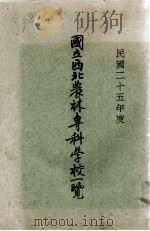 民國二十五年度
國立西北農林專科學校一覽